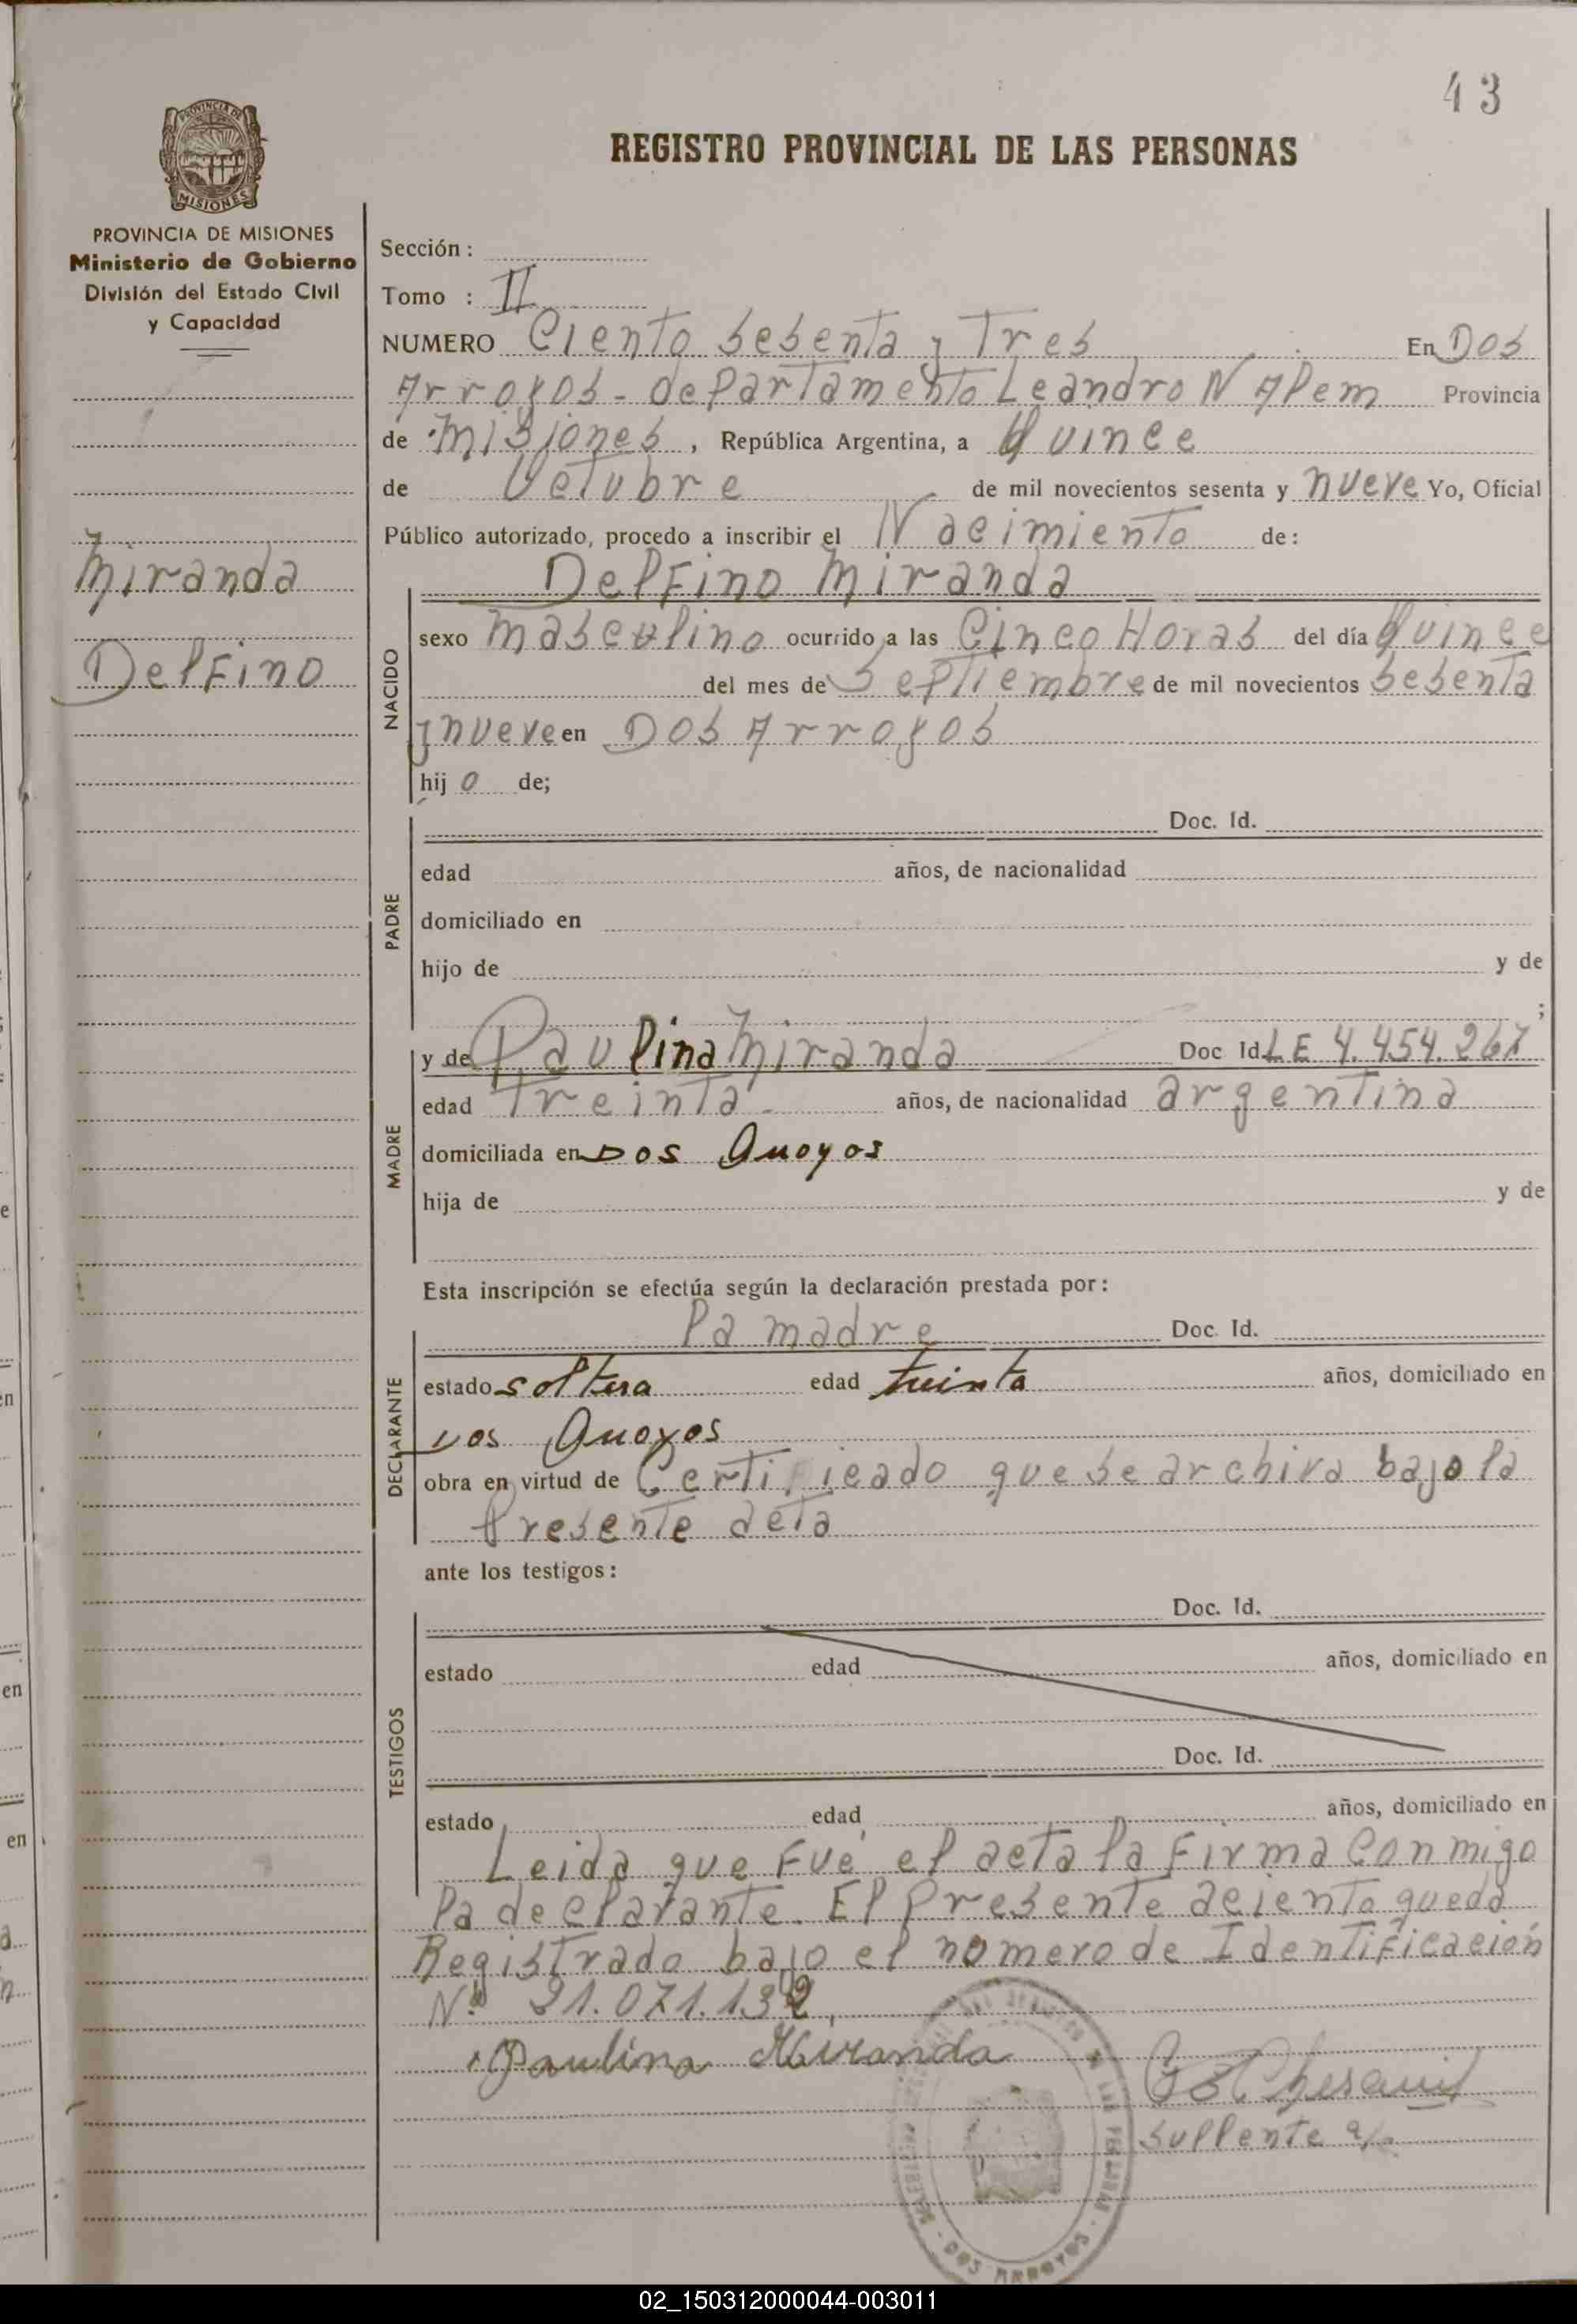 43
PROVINCIA DE
MISIONES
REGISTRO PROVINCIAL DE LAS PERSONAS
PROVINCIA DE MISIONES
Ministerio de Gobierno
División del Estado Civil
y Capacidad
Miranda
Delfino
Sección :
Tomo : II
NUMERO Ciento sesenta y Tres En Dos
Arroyos - departamento Leandro N Alem Provincia
de Misiones, República Argentina, a Quince
de Octubre de mil novecientos sesenta y nueve Yo, Oficial
Público autorizado, procedo a inscribir el Nacimiento de:
Delfino Miranda
NACIDO
sexo masculino ocurrido a las Cinco Horas del día Quince
del mes de Septiembre de mil novecientos sesenta
y nueve en Dos Arroyos
hij o de;
PADRE
Doc. Id.
edad años, de nacionalidad
domiciliado en
hijo de y de
;
MADRE
y de Paulina Miranda Doc Id. LE 4.454.267
edad Treinta años, de nacionalidad argentina
domiciliada en Dos Arroyos
hija de y de
Esta inscripción se efectúa según la declaración prestada por:
DECLARANTE
la madre Doc. Id.
estado soltera edad treinta años, domiciliado en
Dos Arroyos
obra en virtud de Certificado que se archiva bajo la
Presente acta
ante los testigos:
TESTIGOS
Doc. Id.
estado edad años, domiciliado en
Doc. Id.
estado edad años, domiciliado en
Leida que Fué el acta la Firma Conmigo
la declarante. El Presente aciento queda
Registrado bajo el nomero de Identificación
Nº 21.071.132
Paulina Miranda
Suplente a/c
DOS ARROYOS
02_150312000044-003011